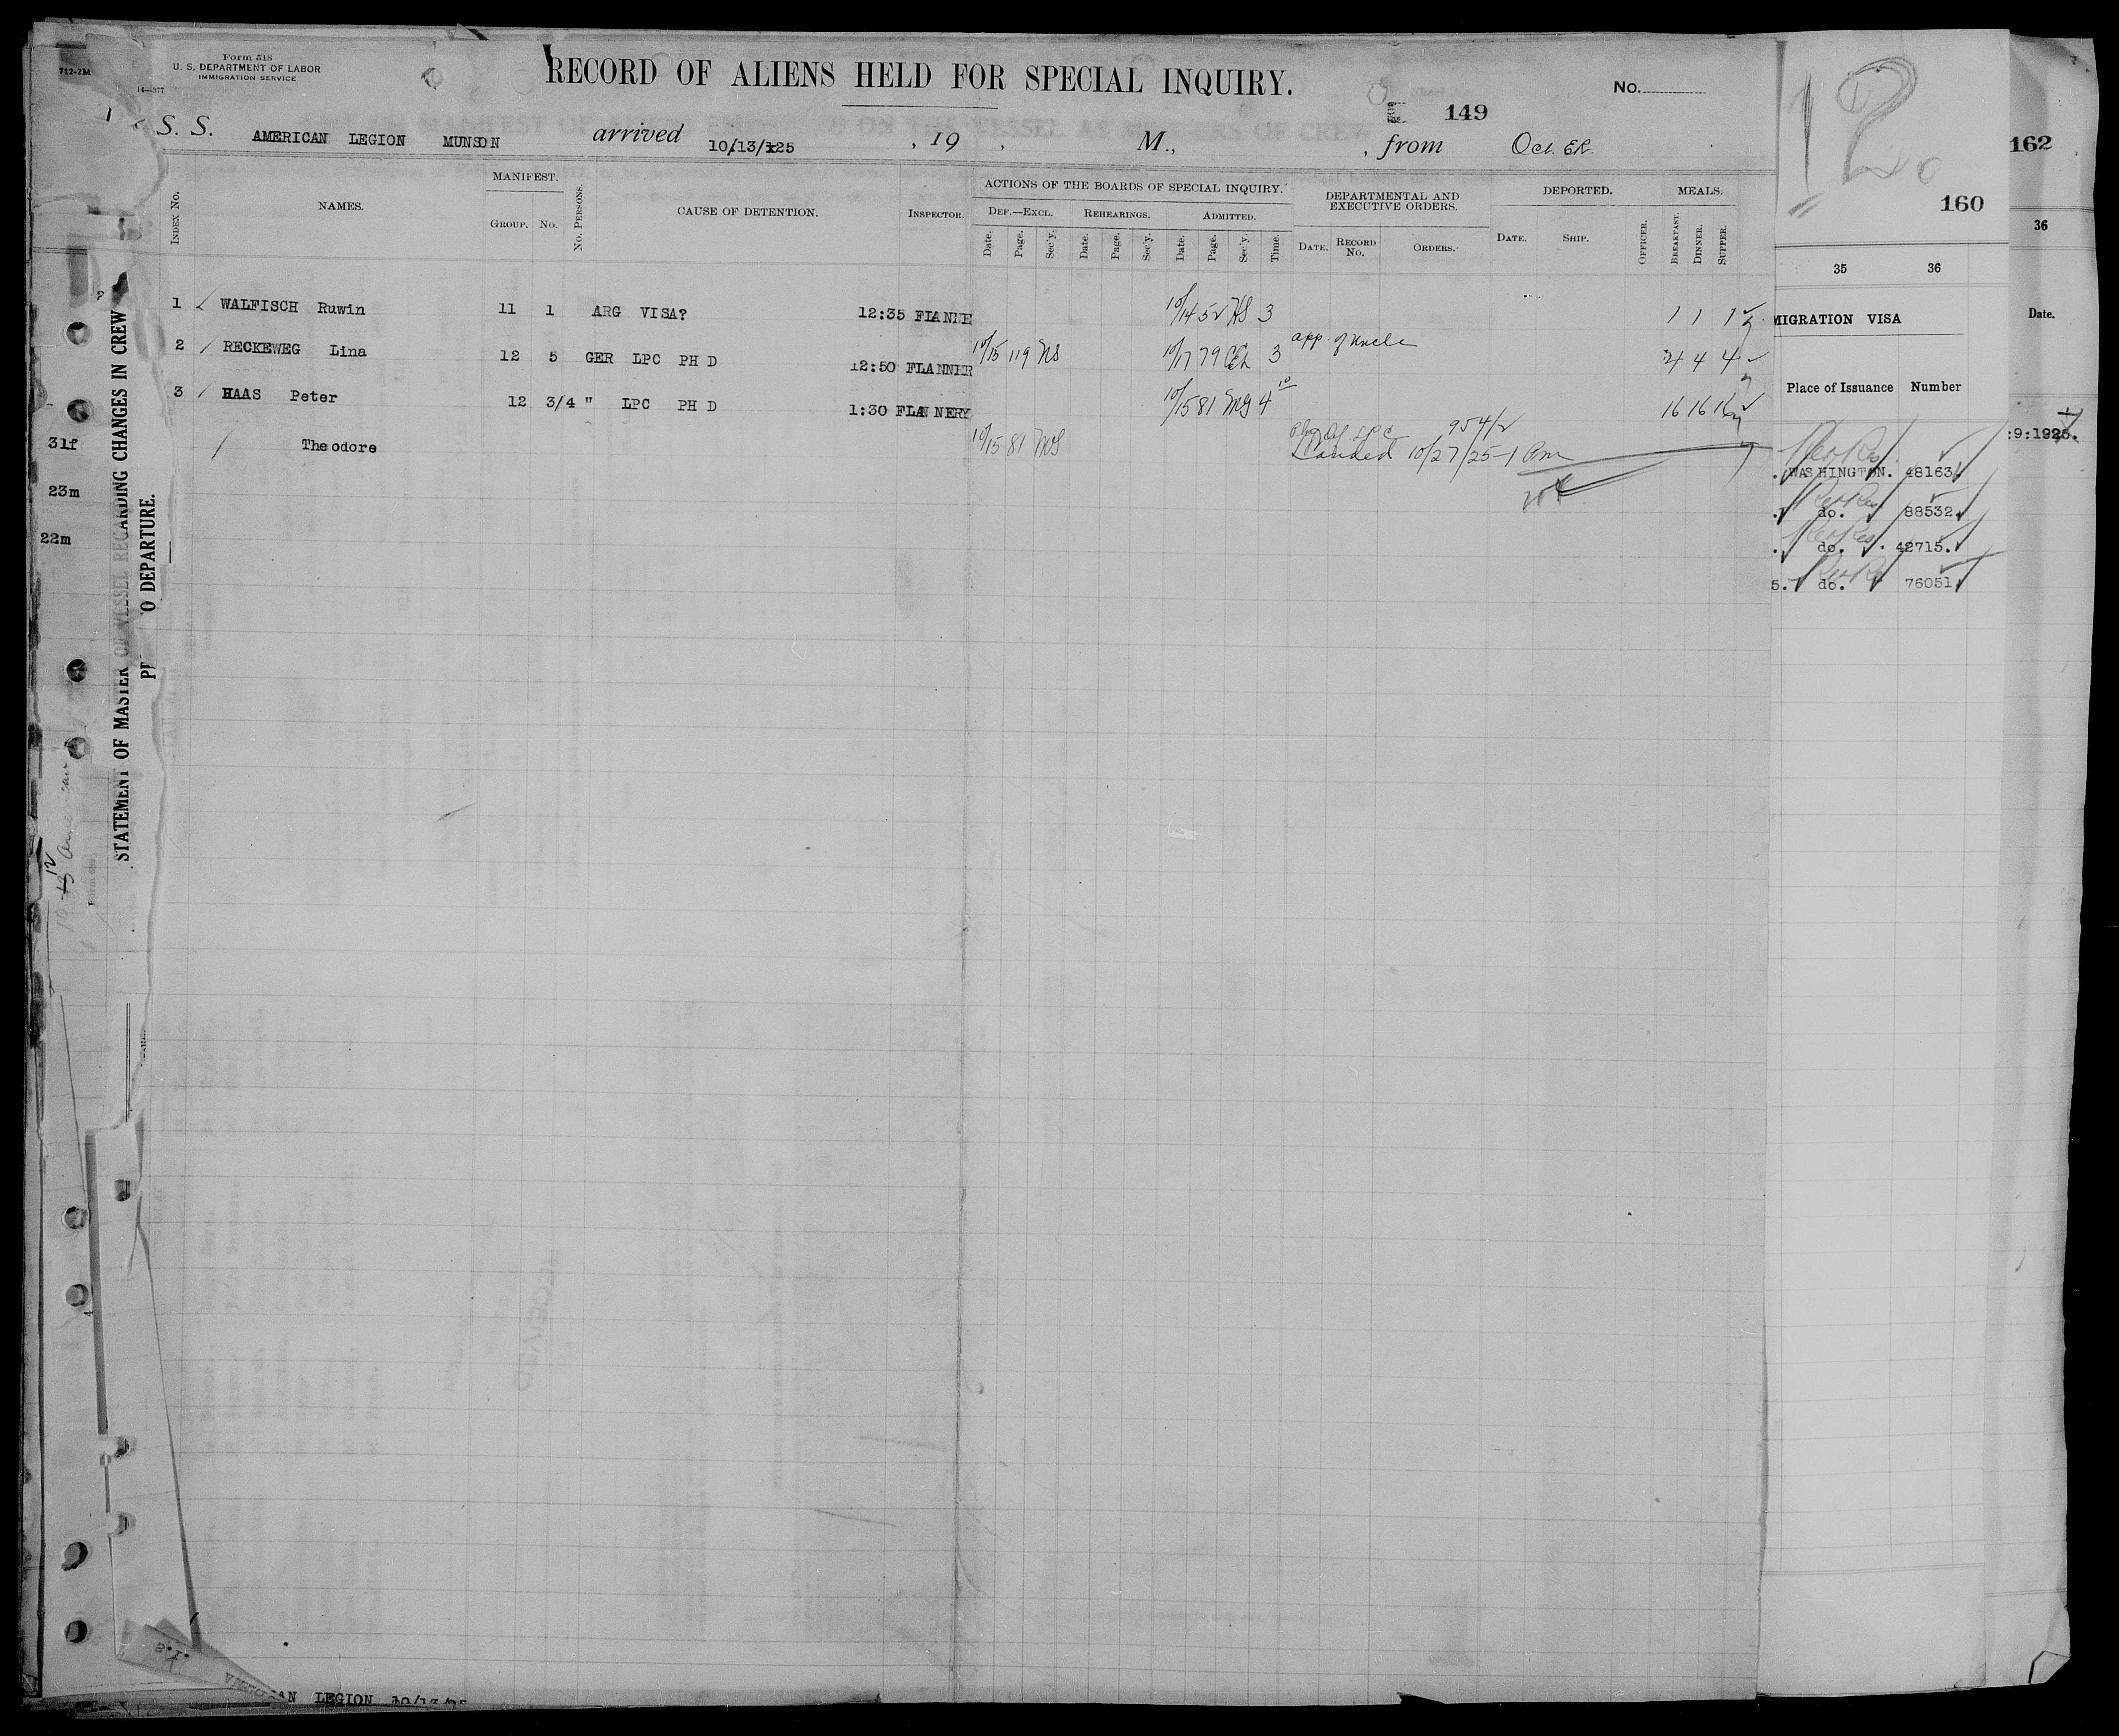 712-2M
Form 518
U. S. DEPARTMENT OF LABOR
IMMIGRATION SERVICE
14—377
RECORD OF ALIENS HELD FOR SPECIAL INQUIRY.
No.
149
S. S. AMERICAN LEGION MUNSON arrived 10/13/25, 19 , M., , from
MANIFEST.
INDEX No.
NAMES.
GROUP. No.
No. PERSONS.
CAUSE OF DETENTION.
INSPECTOR.
ACTIONS OF THE BOARDS OF SPECIAL INQUIRY.
DEF.—EXCL. REHEARINGS. ADMITTED.
Date. Page. Sec'y. Date. Page. Sec'y. Date. Page. Sec'y. Time.
DEPARTMENTAL AND
EXECUTIVE ORDERS.
DATE. RECORD No. ORDERS.
DEPORTED.
DATE. SHIP. OFFICER.
MEALS.
BREAKFAST. DINNER. SUPPER.
1 WALFISCH Ruwin 11 1 ARG VISA? 12:35 10/14 52 HS 3 1 1 1
2 RECKEWEG Lina 12 5 GER LPC PH D 12:50 FLANNER 10/15 119 10/17 79 3 app. of uncle 4 4 4
3 HAAS Peter 12 3/4 " LPC PH D 1:30 FLANNERY 10/15 81 4 10 16 16 16
Theodore 10/15 81 954/2
Landed 10/27/25-1 Pm
31f
23m
22m
STATEMENT OF MASTER OF VESSEL REGARDING CHANGES IN CREW
O DEPARTURE.
160
35 36
MIGRATION VISA
Place of Issuance Number
WASHINGTON. 48163.
do. 88532.
do. 42715.
5. do. 76051
162
36
Date.
:9:1925.
AN LEGION 10/13/25